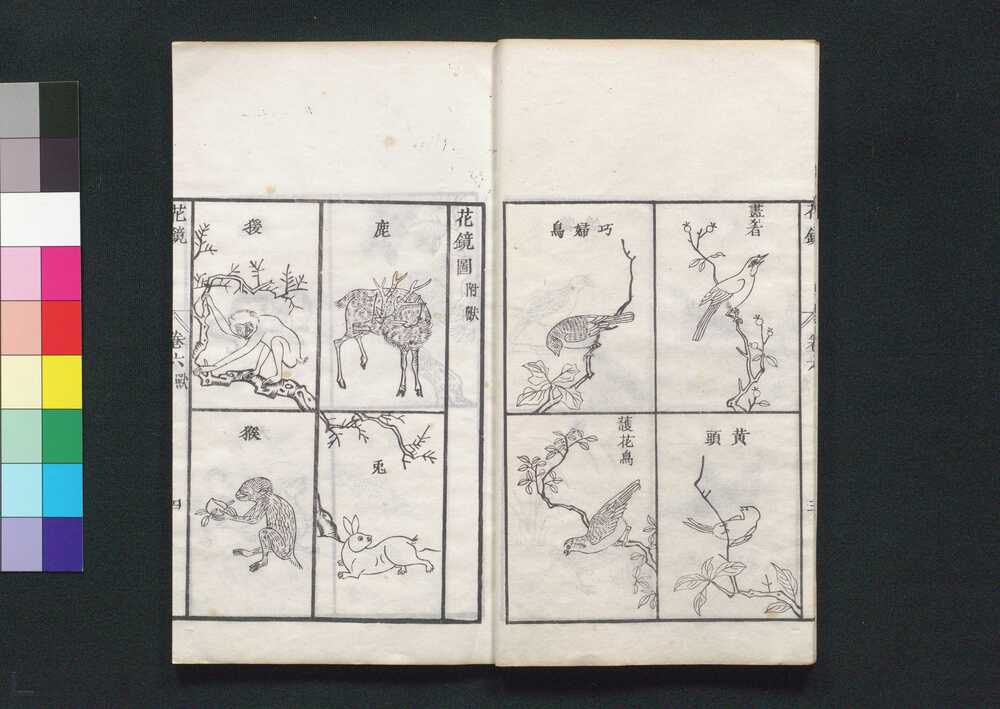 畫眉
黃頭
巧婦鳥
護花鳥
花鏡圖附獸
鹿
兎
猨
猴
花鏡
卷六獸
四